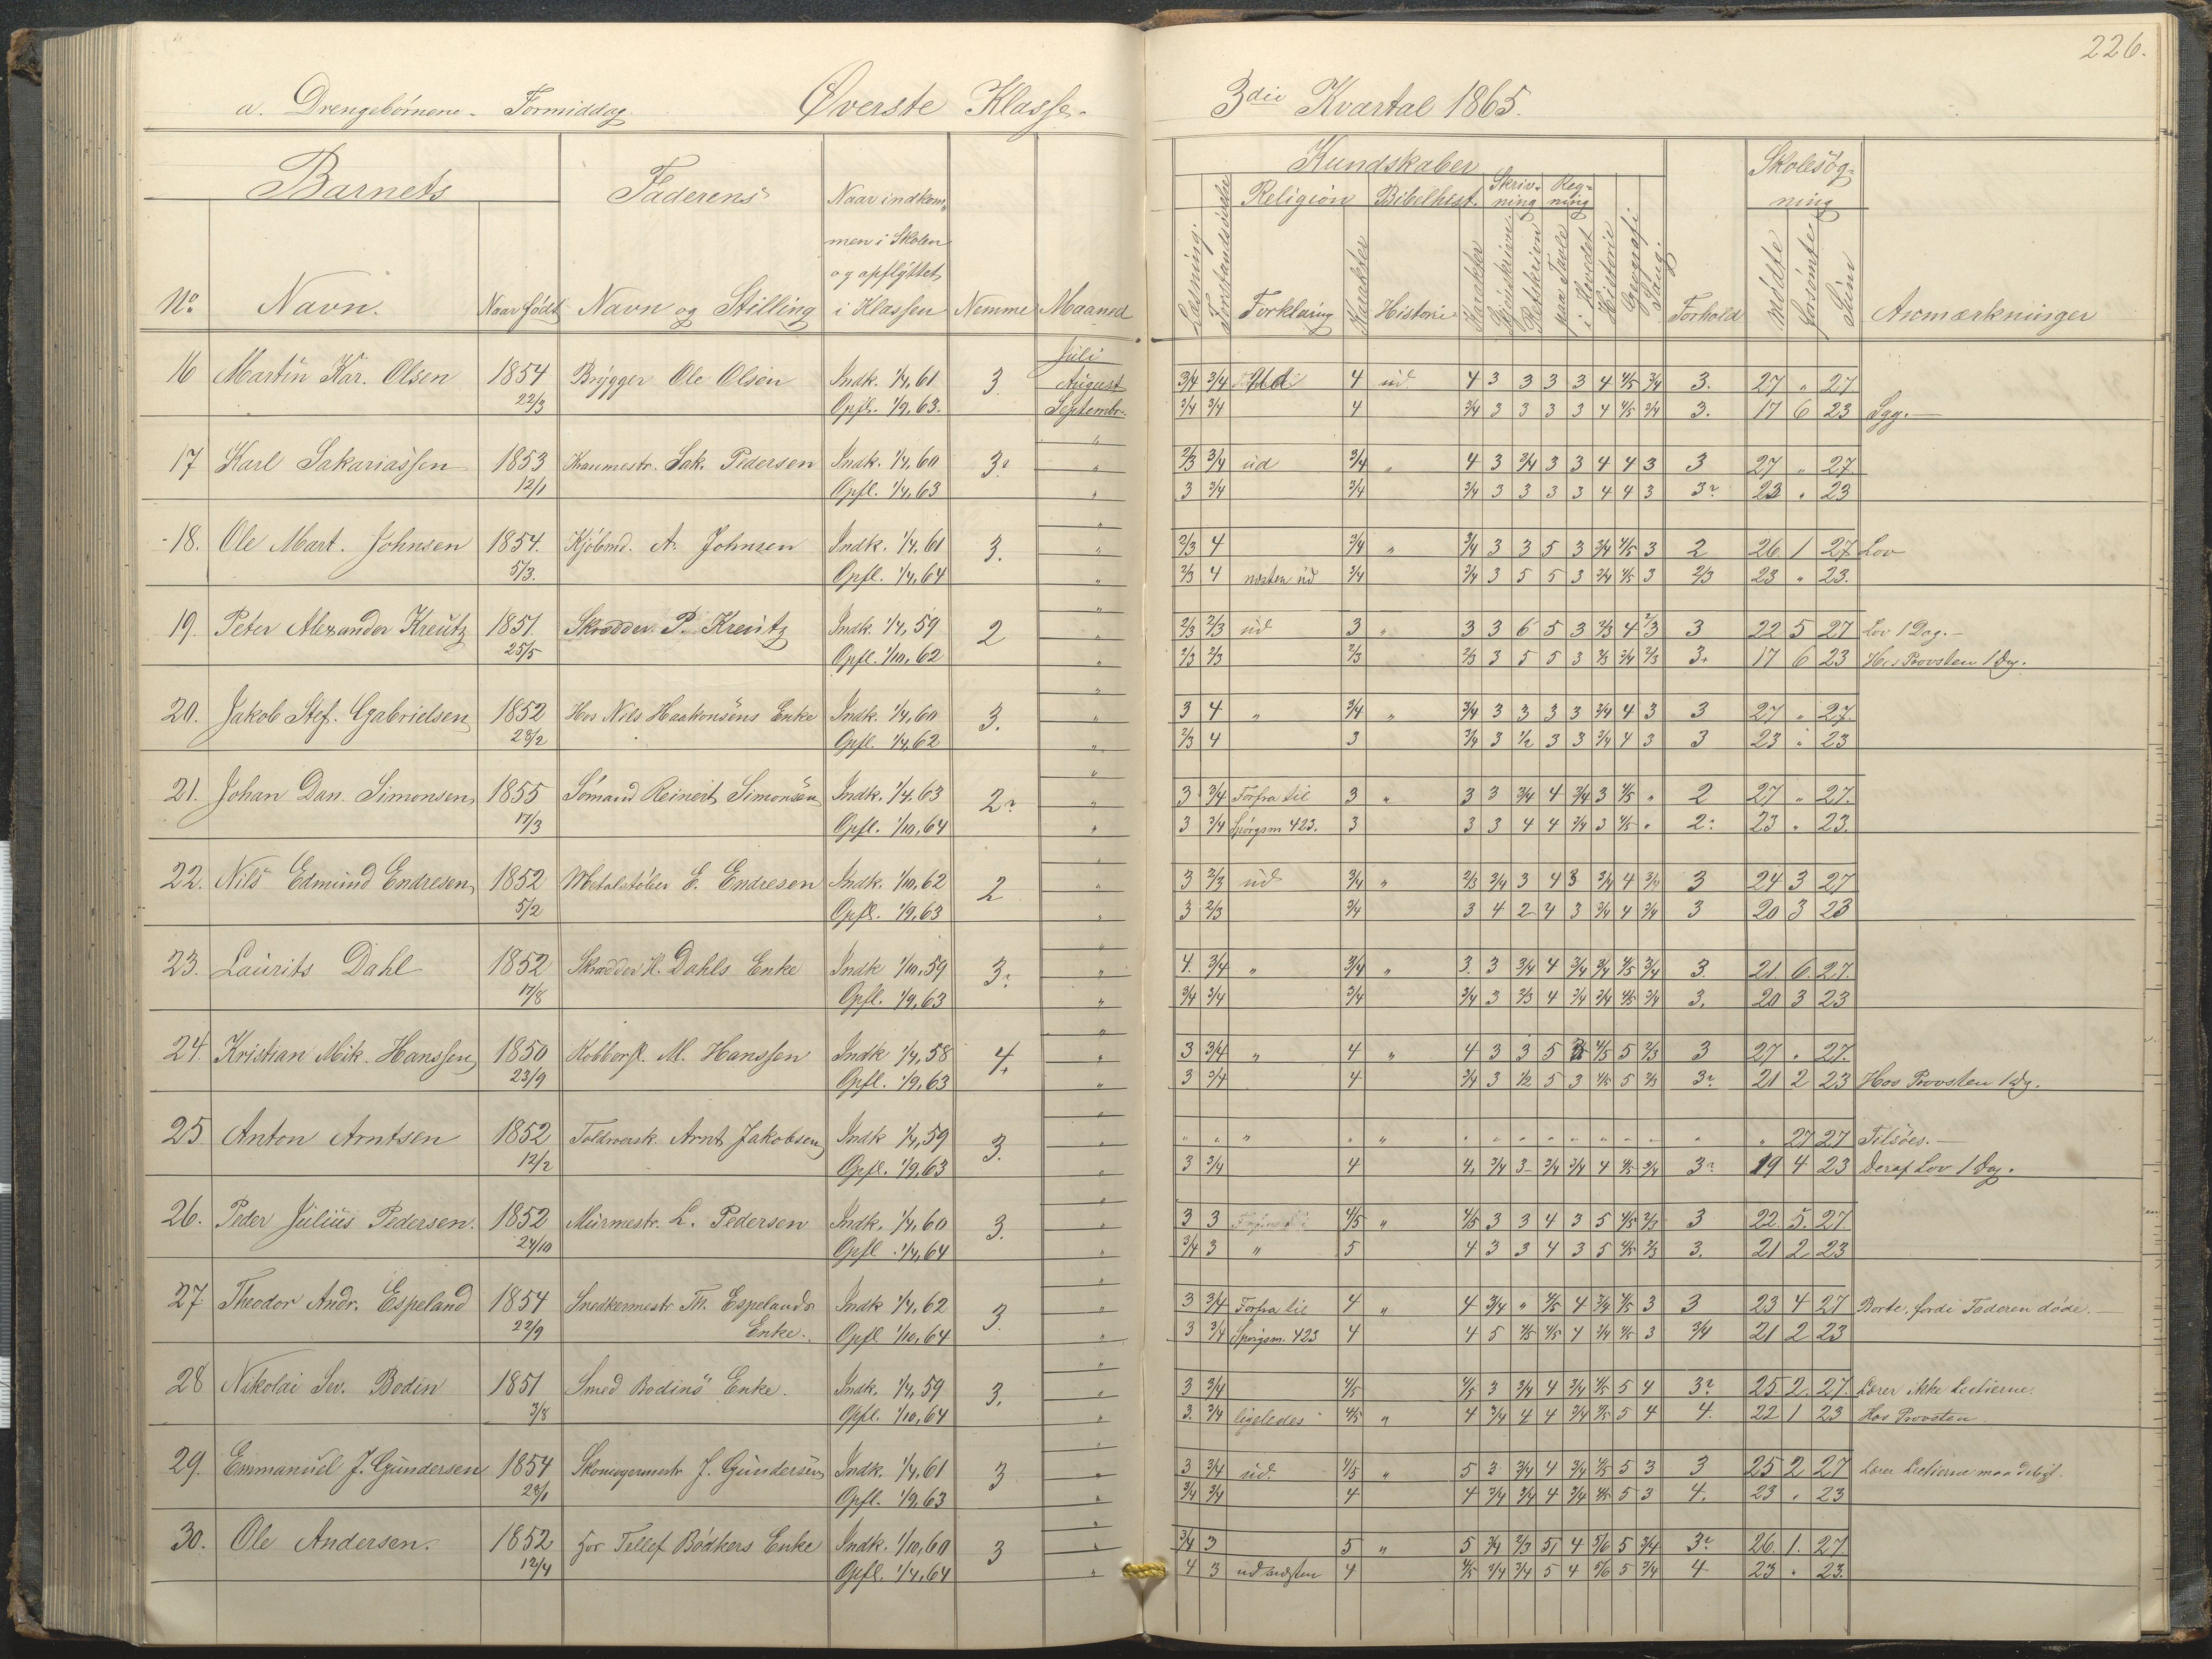 226.
a. Drengebørnene - Formiddag. Øverste Klasse. 3die Kvartal 1865.
Barnets Faderens Naar indkom- Kundskaber Skolesøg-
men i Skolen Religion Bibelhist. Skriv- Reg- ning
og opflyttet ning ning
No Navn. Naar født Navn og Stilling i Klassen Nemme Maaned Læsning. Forstandsøvelse Forklaring Karakter Historie Karakter Skjønskriven Retskriven paa Tavle i Hovedet Historie Geografi Sang Forhold mødte forsømte Sum Anmærkninger
Juli
16 Martin Kar. Olsen 1854 Brygger Ole Olsen Indk. 1/4, 61 3 August 3/4 3/4 4 ud 4 3 3 3 3 4 4/5 3/4 3. 27 " 27
22/3 Opfl. 1/9, 63. Septembr. 3/4 3/4 4 3/4 3 3 3 3 4 4/5 3/4 3. 17 6 23 Syg.-
"
17 Karl Sakariassen 1853 Sak. Pedersen Indk. 1/4, 60 3. " 2/3 3/4 ud 3/4 " 4 3 3/4 3 3 4 4 3 3 27 " 27
12/1 Opfl. 1/4, 63 " 3 3/4 3/4 3/4 3 3 3 3 4 4 3 3? 23 " 23
"
18. Ole Mart. Johnsen 1854. Kjøbmd. A. Johnsen Indk. 1/4, 61 3. " 2/3 4 3/4 " 3/4 3 3 5 3 3/4 4/5 3 2 26 1 27 Lov
5/3. Opfl. 1/4, 64 " 2/3 4 næsten ud 3/4 3/4 3 5 5 3 3/4 4/5 3 2/3 23 " 23.
"
19. Peter Alexander Kreutz 1851. Skrædder P. Kreutz Indk. 1/4, 59 2 " 2/3 2/3 ud 3 " 3 3 6 5 3 2/3 4 2/3 3 22 5 27 Lov 1 Dag.-
25/5 Opfl. 1/10, 62 " 2/3 2/3 2/3 2/3 3 5 5 3 2/3 3/4 2/3 3. 17 6 23 Hos Provsten 1 Dg.
"
20. Jakob Stef. Gabrielsen 1852 Hos Nils Haakonsens Enke Indk. 1/4, 60 3. " 3 4 " 3/4 " 3/4 3 3 3 3 3/4 4 3 3 27 " 27.
28/2 Opfl. 1/4, 62 " 2/3 4 3 3/4 3 1/2 3 3 3/4 4 3 3 23 " 23
"
21. Johan Dan. Simonsen 1855 Sømand Reinert Simonsen Indk. 1/4, 63 2? " 3 3/4 Forfra til 3 " 3 3 3/4 4 3/4 3 4/5 " 2 27 " 27.
17/3 Opfl. 1/10, 64 " 3 3/4 Spørgsm 423. 3 3 3 4 4 3/4 3 4/5 " 2? 23 " 23.
"
22. Nils Edmund Endresen 1852 Metalstøber E. Endresen Indk. 1/10, 62 2 " 3 2/3 ud 3/4 " 2/3 3/4 3 4 3 3/4 4 3/4 3 24 3 27
5/2 Opfl. 1/9, 63 " 3 2/3 3/4 3 4 2 4 3 3/4 4 3/4 3 20 3 23
"
23. Laurits Dahl 1852 Skrædder H. Dahls Enke Indk 1/10, 59 3? " 4. 3/4 " 3/4 " 3. 3 3/4 4 3/4 3/4 4/5 3/4 3. 21. 6. 27.
17/8 Opfl. 1/9, 63 " 3/4 3/4 3/4 3/4 3 2/3 4 3/4 3/4 4/5 3/4 3. 20 3 23
"
24. Kristian Mik. Hanssen 1850 M. Hanssen Indk 1/4, 58 4. " 3 3/4 " 4 " 4 3 3 5 4/5 5 2/3 3 27 " 27.
23/9 Opfl. 1/9, 63 " 3 3/4 4 3/4 3 1/2 5 3 4/5 5 2/3 3? 21 2 23 Hos Provsten 1 Dg.
"
25. Anton Arntsen 1852 Arnt Jakobsen Indk 1/4, 59 3. " " " " " " " " " " " " " " " " 27 27 Tilsøes.-
12/2 Opfl. 1/9, 63 " 3 3/4 4 4. 3/4 3 3/4 3/4 4 4/5 3/4 3? 19 4 23 Deraf Lov 1 Dag.
"
26. Peder Julius Pedersen. 1852 Murmestr. L. Pedersen Indk. 1/4, 60 3. " 3 3 4/5 " 4/5 3 3 4 3 5 4/5 2/3 3 22 5. 27
24/10 Opfl. 1/4, 64 " 3/4 3 " 5 4 3 3 4 3 5 4/5 2/3 3. 21 2 23
"
27 Theodor Andr. Espeland 1854 Snedkermestr Th. Espelands Indk 1/4, 62 3. " 3 3/4 Forfra til 4 " 4 3/4 " 4/5 4 3/4 4/5 3 3 23 4 27 Borte, fordi Faderen døde.-
22/9 Enke. Opfl 1/10, 64 " 3 3/4 Spørgsm. 423 4 4 5 4/5 4/5 4 3/4 4/5 3 3/4 21 2 23
"
28 Nikolai Sev. Bodin 1851 Smed Bodins Enke. Indk. 1/4, 59 3. " 3 3/4 4/5 4/5 3 3/4 4 3/4 4/5 5 4 3? 25 2. 27. Lærer ikke Lectierne.
3/8 Opfl. 1/10, 64 " 3. 3/4 ligeledes 4/5 " 4 3/4 4 4 3/4 4/5 5 4 4. 22 1 23 Hos Provsten.
"
29. Emmanuel J. Gundersen 1854 Skomagermestr J. Gundersen Indk. 1/4, 61 3 " 3 3/4 ud. 4/5 " 5 3 3/4 4 3/4 4/5 5 3 3 25 2 27 Lærer Lectierne maadeligt.
28/1 Opfl. 1/9, 63 " 3/4 3/4 4 4 3/4 3/4 4 3/4 4/5 5 3 4. 23 " 23
"
30. Ole Andersen. 1852 hos Tellef Bødkers Enke Indk. 1/10, 60 3 " 3/4 3 5 " 5 3/4 2/3 5 4 5/6 5 3/4 3? 26. 1. 27
12/4 Opfl. 1/4, 64 " 4 3 ud næsten 4 4/5 3/4 3/4 5 4 5/6 5 3/4 4 23 " 23.